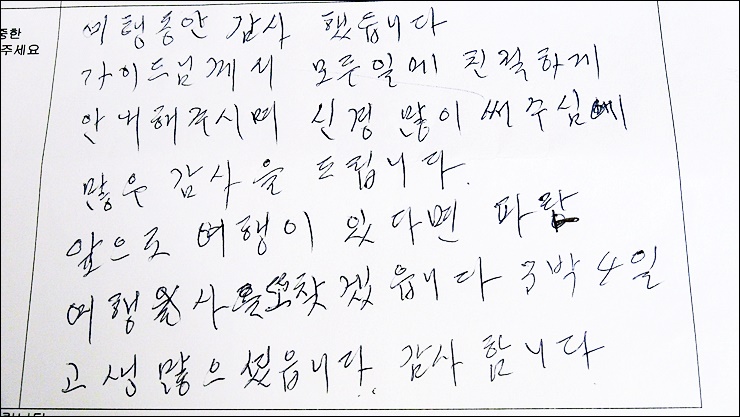 중한
주세요
여행동안 감사 했듭니다
가이드님께서 모두일에 친절하게
안내해주시며 신경 많이 써주심에
많은 감사을 드립니다.
앞으로 여행이 있다면 파랑
여행 사 찾겠읍니다 3박4일
고생많으셨읍니다. 감사합니다